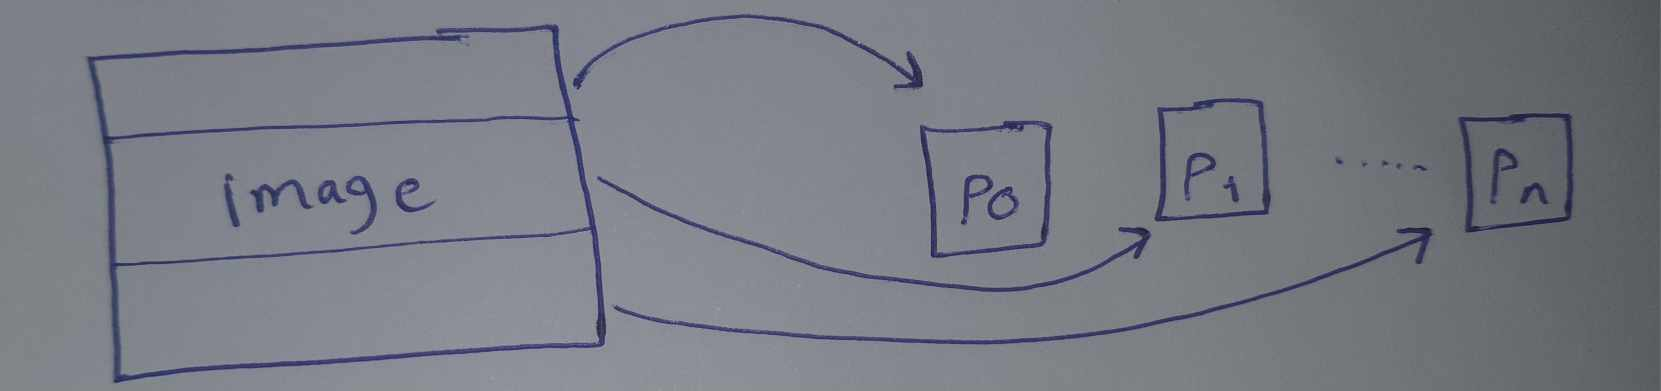 image
P0
P1
.....
Pn